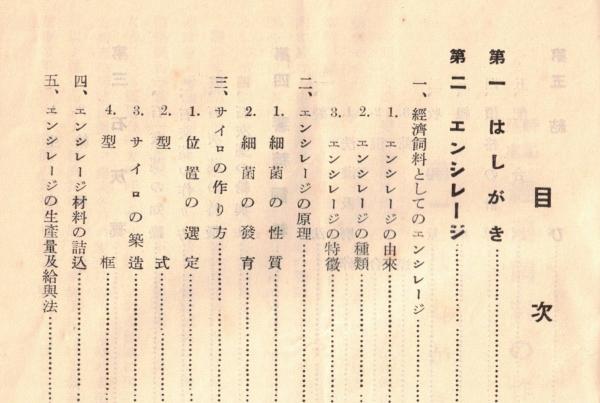 目次
第一 はしがき
第二 エンシレージ
一、經濟飼料としてのエンシレージ
1. エンシレージの由來
2. エンシレージの種類
3. エンシレージの特徴
二、エンシレージの原理
1. 細菌の性質
2. 細菌の發育
三、サイロの作り方
1. 位置の選定
2. 型式
3. サイロの築造
4. 型框
四、エンシレージ材料の詰込
五、エンシレージの生產量及給與法